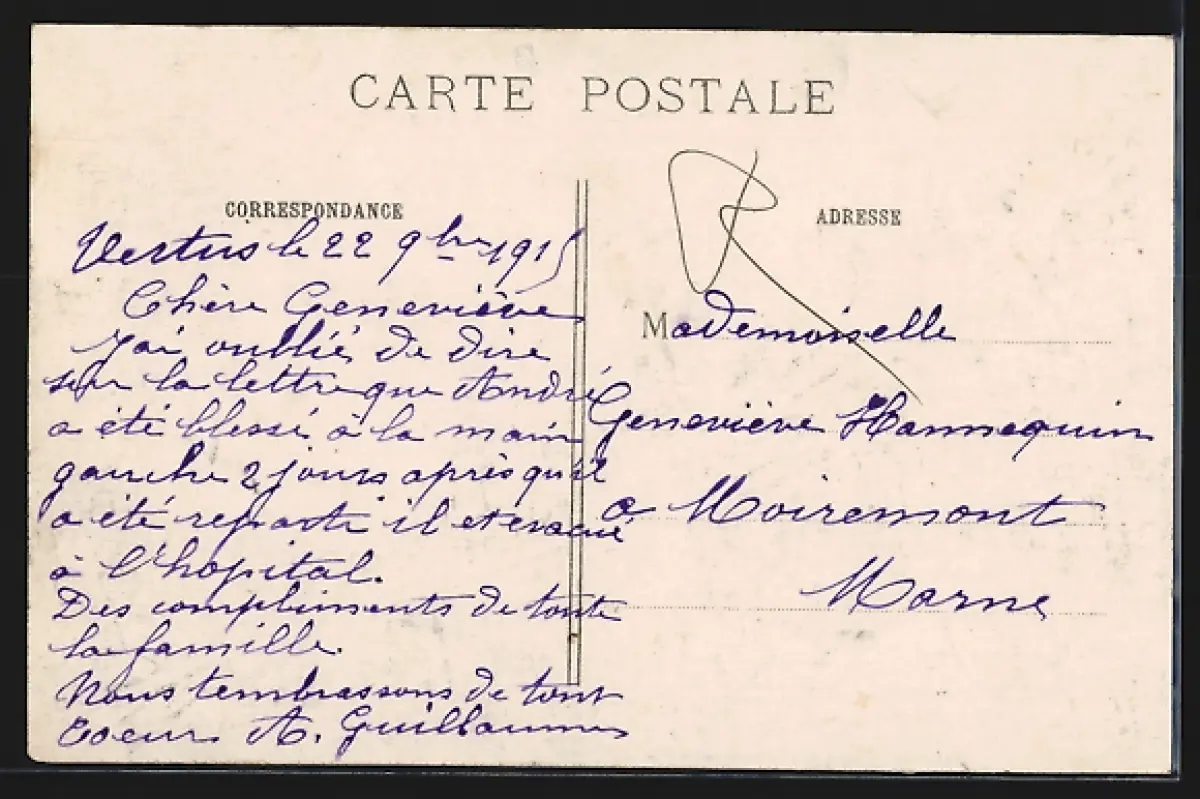 CARTE POSTALE
CORRESPONDANCE
Vertus le 22 9bre 1915
Chère Geneviève
J'ai oublié de dire
sur la lettre que André
a été blessé à la main
gauche 2 jours après qu'il
a été reparti il et evacué
à l'hopital.
Des compliments de toute
la famille.
Nous tembrassons de tout
coeur A. Guillaume
ADRESSE
Mademoiselle
Geneviève Hannequin
a Moiremont
Marne